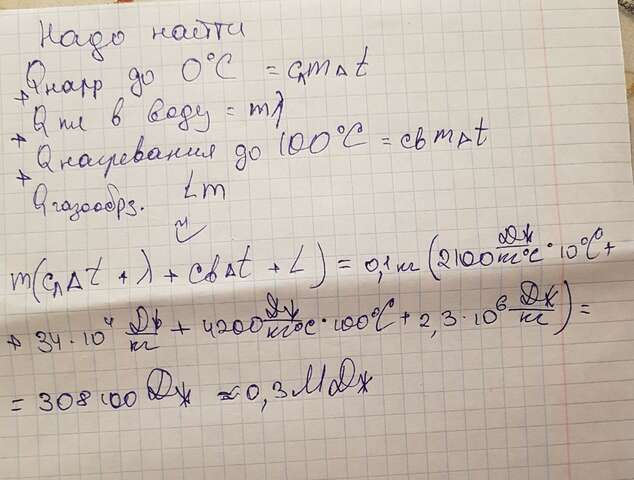 Надо найти
Qнагр до 0°C = cлmΔt
+ Qпл в воду = mλ
+ Qнагревания до 100°C = cвmΔt
+ Qгазообрз. Lm
m(cлΔt + λ + cвΔt + L) = 0,1кг (2100 Дж/кг°C · 10°C +
+ 34 · 10⁴ Дж/кг + 4200 Дж/кг°C · 100°C + 2,3 · 10⁶ Дж/кг) =
= 308100 Дж ≈ 0,3 МДж